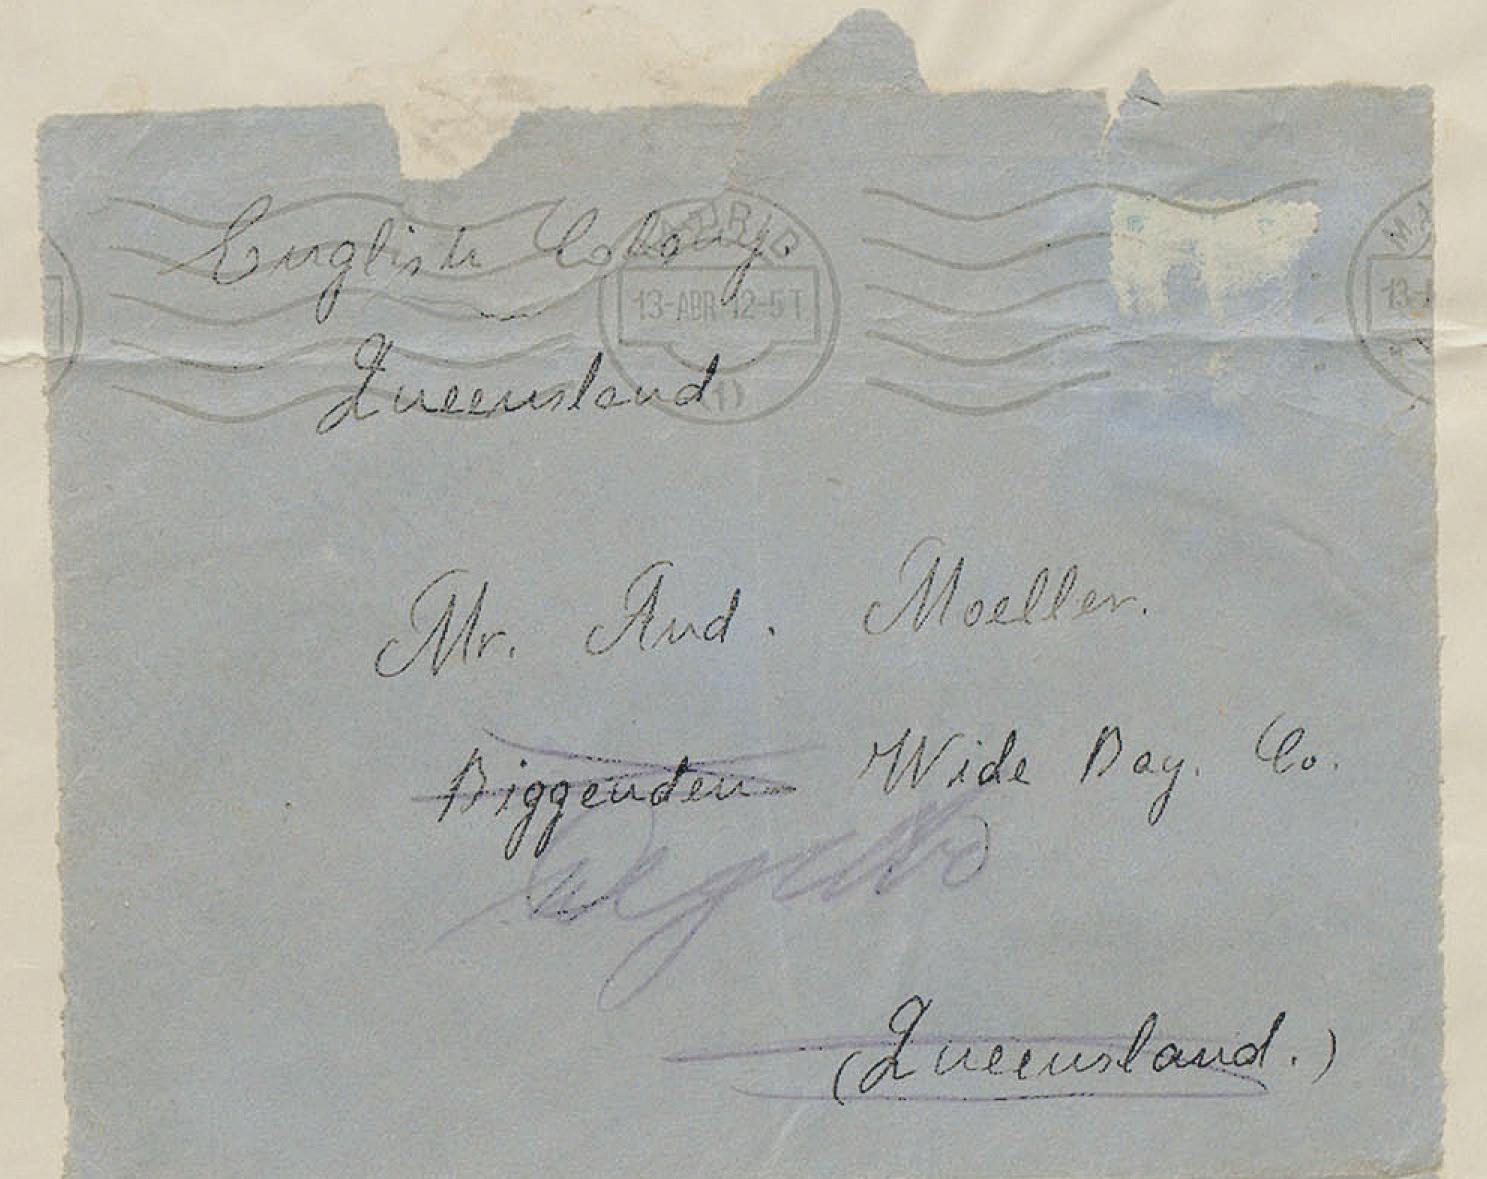 English Colony.
MADRID
13-ABR 12-5T
(1)
MA
13-
Queensland
Mr. And. Moeller.
Biggenden Wide Bay. Co.
(Queensland.)